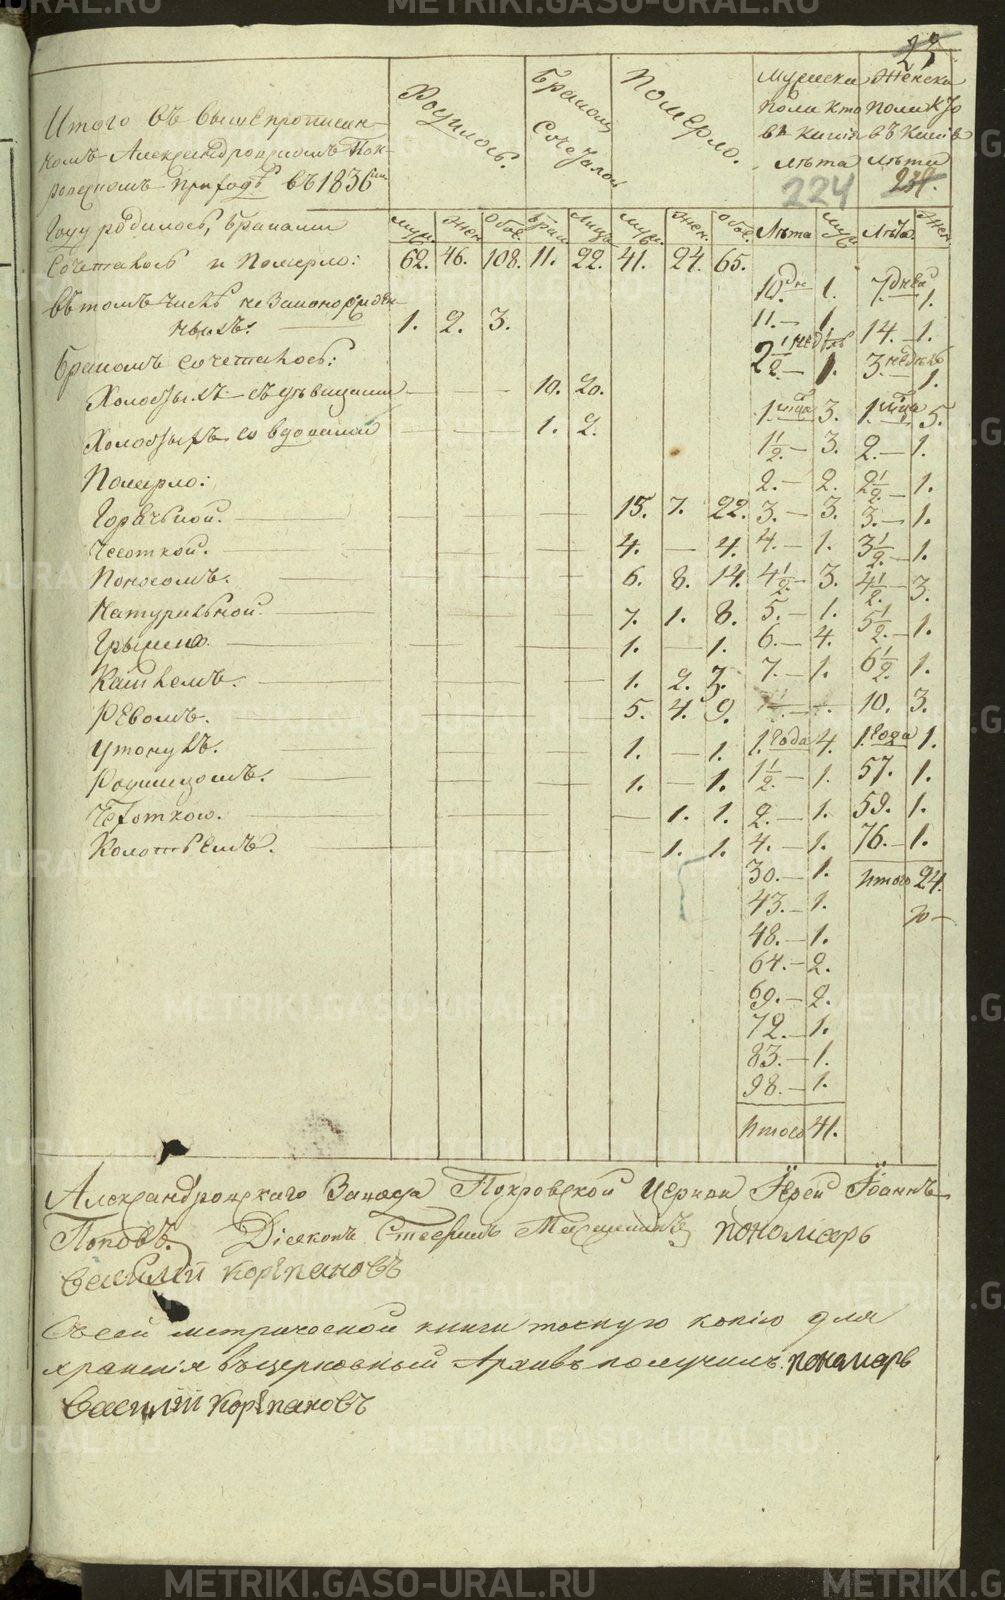 23
Родилось.
Бракомъ Сочеталось
Померло.
Мужеска Женска
пола кто пола кто
въ какія въ какія
лѣта лѣта
224 234.
Итого въ вышепрописан-
номъ Александровскомъ Пок-
ровскомъ приходѣ въ 1836мъ
Году родилось, браками
Муж. Жен. Обое. Брак. Лицъ. Муж. Жен. Обое. Лѣта Муж. Лѣта. Жен.
Сочеталось и Померло: 62. 46. 108. 11. 22. 41. 24. 65.
10 дне 1. 7. дней 1.
въ томъ числѣ незаконорожден-
ныхъ: 1. 2. 3.
11. 1. 14. 1.
Бракомъ сочеталось:
2 1/2 недѣль 1. 3. недѣль 1.
Холостыхъ съ дѣвицами 10. 20.
1. мца 3. 1. мца 5.
Холостыхъ со вдовами 1. 2.
1 1/2. 3. 2. 1.
Померло:
2. 2. 2 1/2 1.
Горячькой. 15. 7. 22. 3. 3. 3. 1.
Чесоткой. 4. — 4. 4. 1. 3 1/2 1.
Поносомъ. 6. 8. 14. 4 1/2 3. 4 1/2. 3.
Натуральной. 7. 1. 8. 5. 1. 5 1/2. 1.
Грыжею. 1. — 1. 6. 4. 6 1/2 1.
Кашлемъ. 1. 2. 3. 7. 1. 10. 3.
Ревомъ. 5. 4. 9.
Утонулъ. 1. — 1. 1. Года 4. 1. Года 1.
Родимцомъ. 1. — 1. 1 1/2. 1. 57. 1.
Чехоткою. — 1. 1. 2. 1. 59. 1.
Колотьемъ. — 1. 1. 4. 1. 76. 1.
30. 1. Итого 24.
43. 1.
48. 1.
64. 2.
69. 2.
72. 1.
83. 1.
98. 1.
Итого 41.
Александровскаго Завода Покровской Церкви Іерей Іоаннъ
Поповъ. Діаконъ Пономарь
Василій Корепановъ
Съ сей метрической книги точную копію для
храненія въ церковный Архивъ получилъ. Пономарь
Василій Корепановъ
METRIKI.GASO-URAL.RU